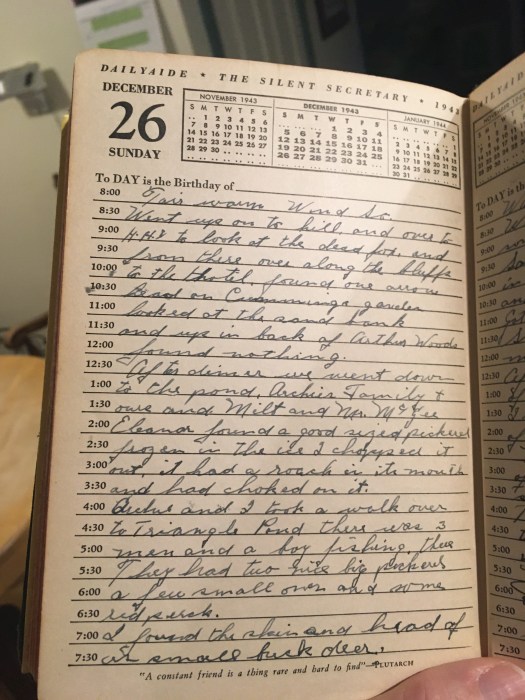 DAILYAIDE * THE SILENT SECRETARY * 194
DECEMBER
26
SUNDAY
NOVEMBER 1943
S M T W T F S
.. 1 2 3 4 5 6
7 8 9 10 11 12 13
14 15 16 17 18 19 20
21 22 23 24 25 26 27
28 29 30
DECEMBER 1943
S M T W T F S
1 2 3 4
5 6 7 8 9 10 11
12 13 14 15 16 17 18
19 20 21 22 23 24 25
26 27 28 29 30 31
JANUARY 1944
To DAY is the Birthday of
8:00 Fair warm Wind So.
8:30 Went up on to hill and over to
9:00 H.H.s to look at the dead fox, and
9:30 from there over along the Bluffs
10:00 to the Hotel, found one arrow
10:30 head on Cummings garden
11:00 looked at the sand bank
11:30 and up in back of Arthur Woods
12:00 found nothing.
12:30 After dinner we went down
1:00 to the pond. Archies Family +
1:30 ours and Milt and Mr. McGee
2:00 Eleanor found a good sized pickerel
2:30 frozen in the ice I chopped it
3:00 out, it had a roach in its mouth
3:30 and had choked on it.
4:00 Archie and I took a walk over
4:30 to Triangle Pond there was 3
5:00 men and a boy fishing there
5:30 They had two nice big pickerel
6:00 a few small ones and some
6:30 red perch.
7:00 I found the skin and head of
7:30 a small buck deer.
"A constant friend is a thing rare and hard to find"—PLUTARCH